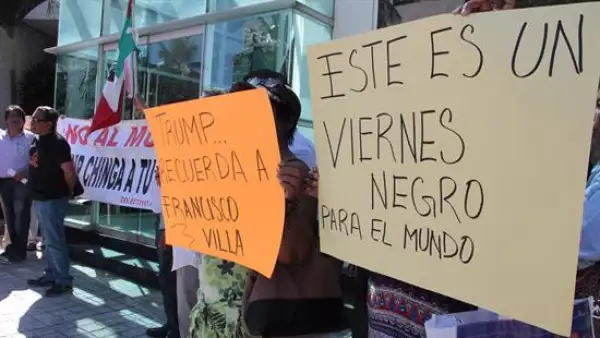 NO AL MU
CHINGA A TU
TRUMP...
RECUERDA A
FRANCISCO
VILLA
ESTE ES UN
VIERNES
NEGRO
PARA EL MUNDO